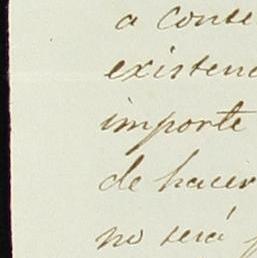 a conte
existenc
importe
de hacer
no será